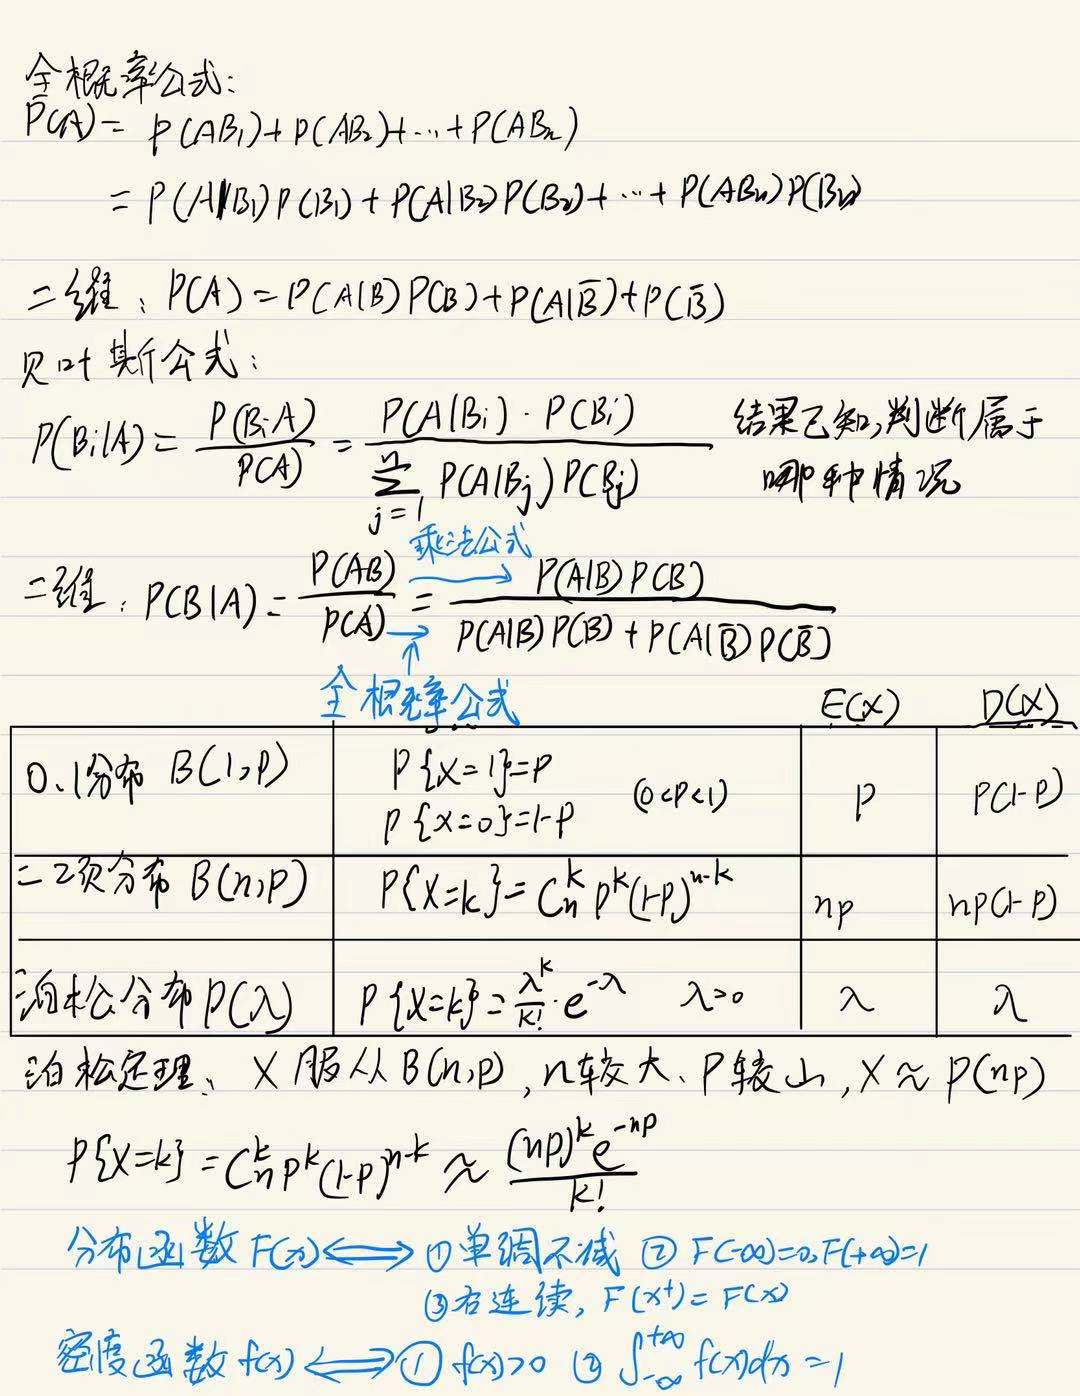 全概率公式:
P(A)= P(AB₁)+P(AB₂)+…+P(ABₙ)
= P(A|B₁)P(B₁)+P(A|B₂)P(B₂)+…+P(ABₙ)P(Bₙ)
二维: P(A)=P(A|B)P(B)+P(A|B̄)+P(B̄)
贝叶斯公式:
P(Bᵢ|A)= P(BᵢA)/P(A) = P(A|Bᵢ)·P(Bᵢ) / ∑ⁿⱼ₌₁ P(A|Bⱼ)P(Bⱼ) 结果已知,判断属于
哪种情况
乘法公式
二维: P(B|A)= P(AB)/P(A) = P(A|B)P(B) / P(A|B)P(B)+P(A|B̄)P(B̄)
全概率公式
E(X) D(X)
0.1分布 B(1,p) P{X=1}=p (0<p<1) p p(1-p)
P{X=0}=1-p
二项分布 B(n,p) P{X=k}=Cₙᵏpᵏ(1-p)ⁿ⁻ᵏ np np(1-p)
泊松分布P(λ) P{X=k}=λᵏ/k!·e^(-λ) λ>0 λ λ
泊松定理、X服从B(n,p),n较大、P较小,X≈P(np)
P{X=k}=Cₙᵏpᵏ(1-p)ⁿ⁻ᵏ≈(np)ᵏe^(-np)/k!
分布函数F(x)⟺①单调不减 ②F(-∞)=0,F(+∞)=1
③右连续,F(x⁺)=F(x)
密度函数f(x)⟺①f(x)>0 ②∫₋∞⁺∞f(x)dx=1